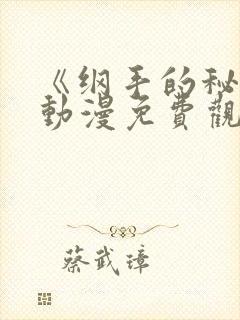 《纲手的秘
動漫免費觀
蔡武璋